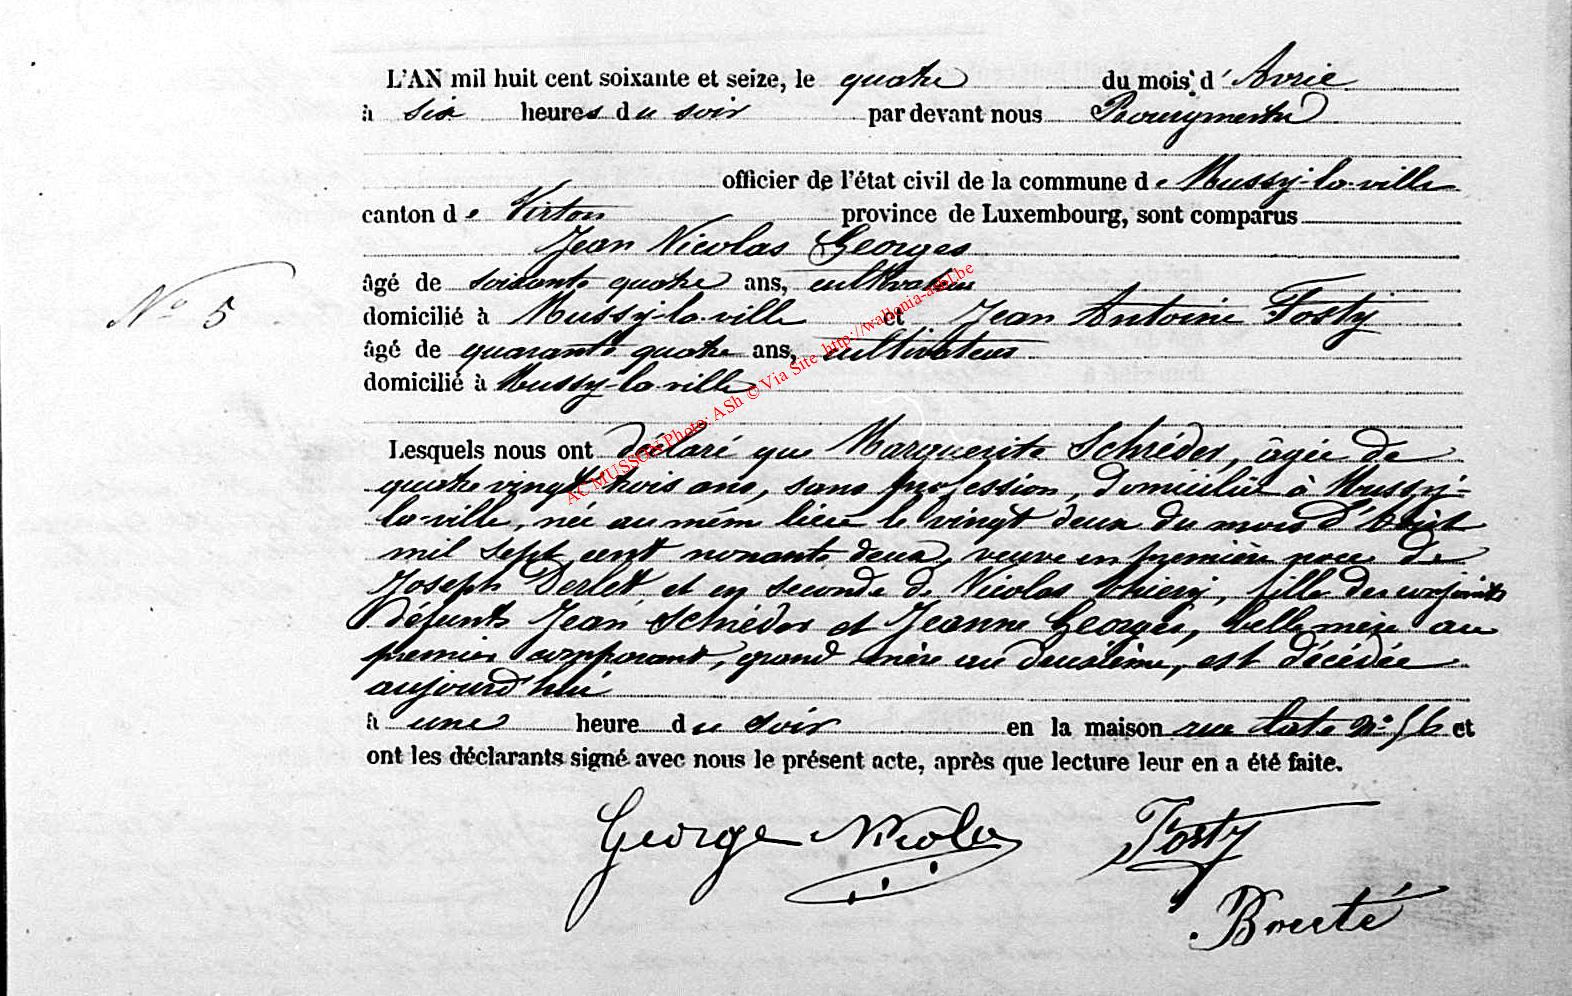 L'AN mil huit cent soixante et seize, le quatre du mois d'Avril
à six heures du soir par devant nous Bourgmestre
officier de l'état civil de la commune de Mussy-la-ville
canton de Virton province de Luxembourg, sont comparus
Jean Nicolas Georges
âgé de soixante quatre ans, cultivateur
N° 5
domicilié à Mussy-la-ville et Jean Antoine Fosty
âgé de quarante quatre ans, cultivateur
domicilié à Mussy-la-ville
Lesquels nous ont déclaré que Marguerite Schréder, âgée de
quatre vingt trois ans, sans profession, domiciliée à Mussy-
la-ville, née au même lieu le vingt deux du mois d'Août
mil sept cent nonante deux, veuve en première noce de
Joseph Derlet, et en seconde de Nicolas thiery, fille des conjoints
défunts Jean Schréder et Jeanne Georges, belle mère au
premier comparant, grand mère au deuxième, est décédée
aujourd'hui
à une heure du soir en la maison rue N° 56 et
ont les déclarants signé avec nous le présent acte, après que lecture leur en a été faite.
George Nicolas Fosty
Bouté
AC MUSSON Photo: ASh © Via Site http://wallonia-asbl.be